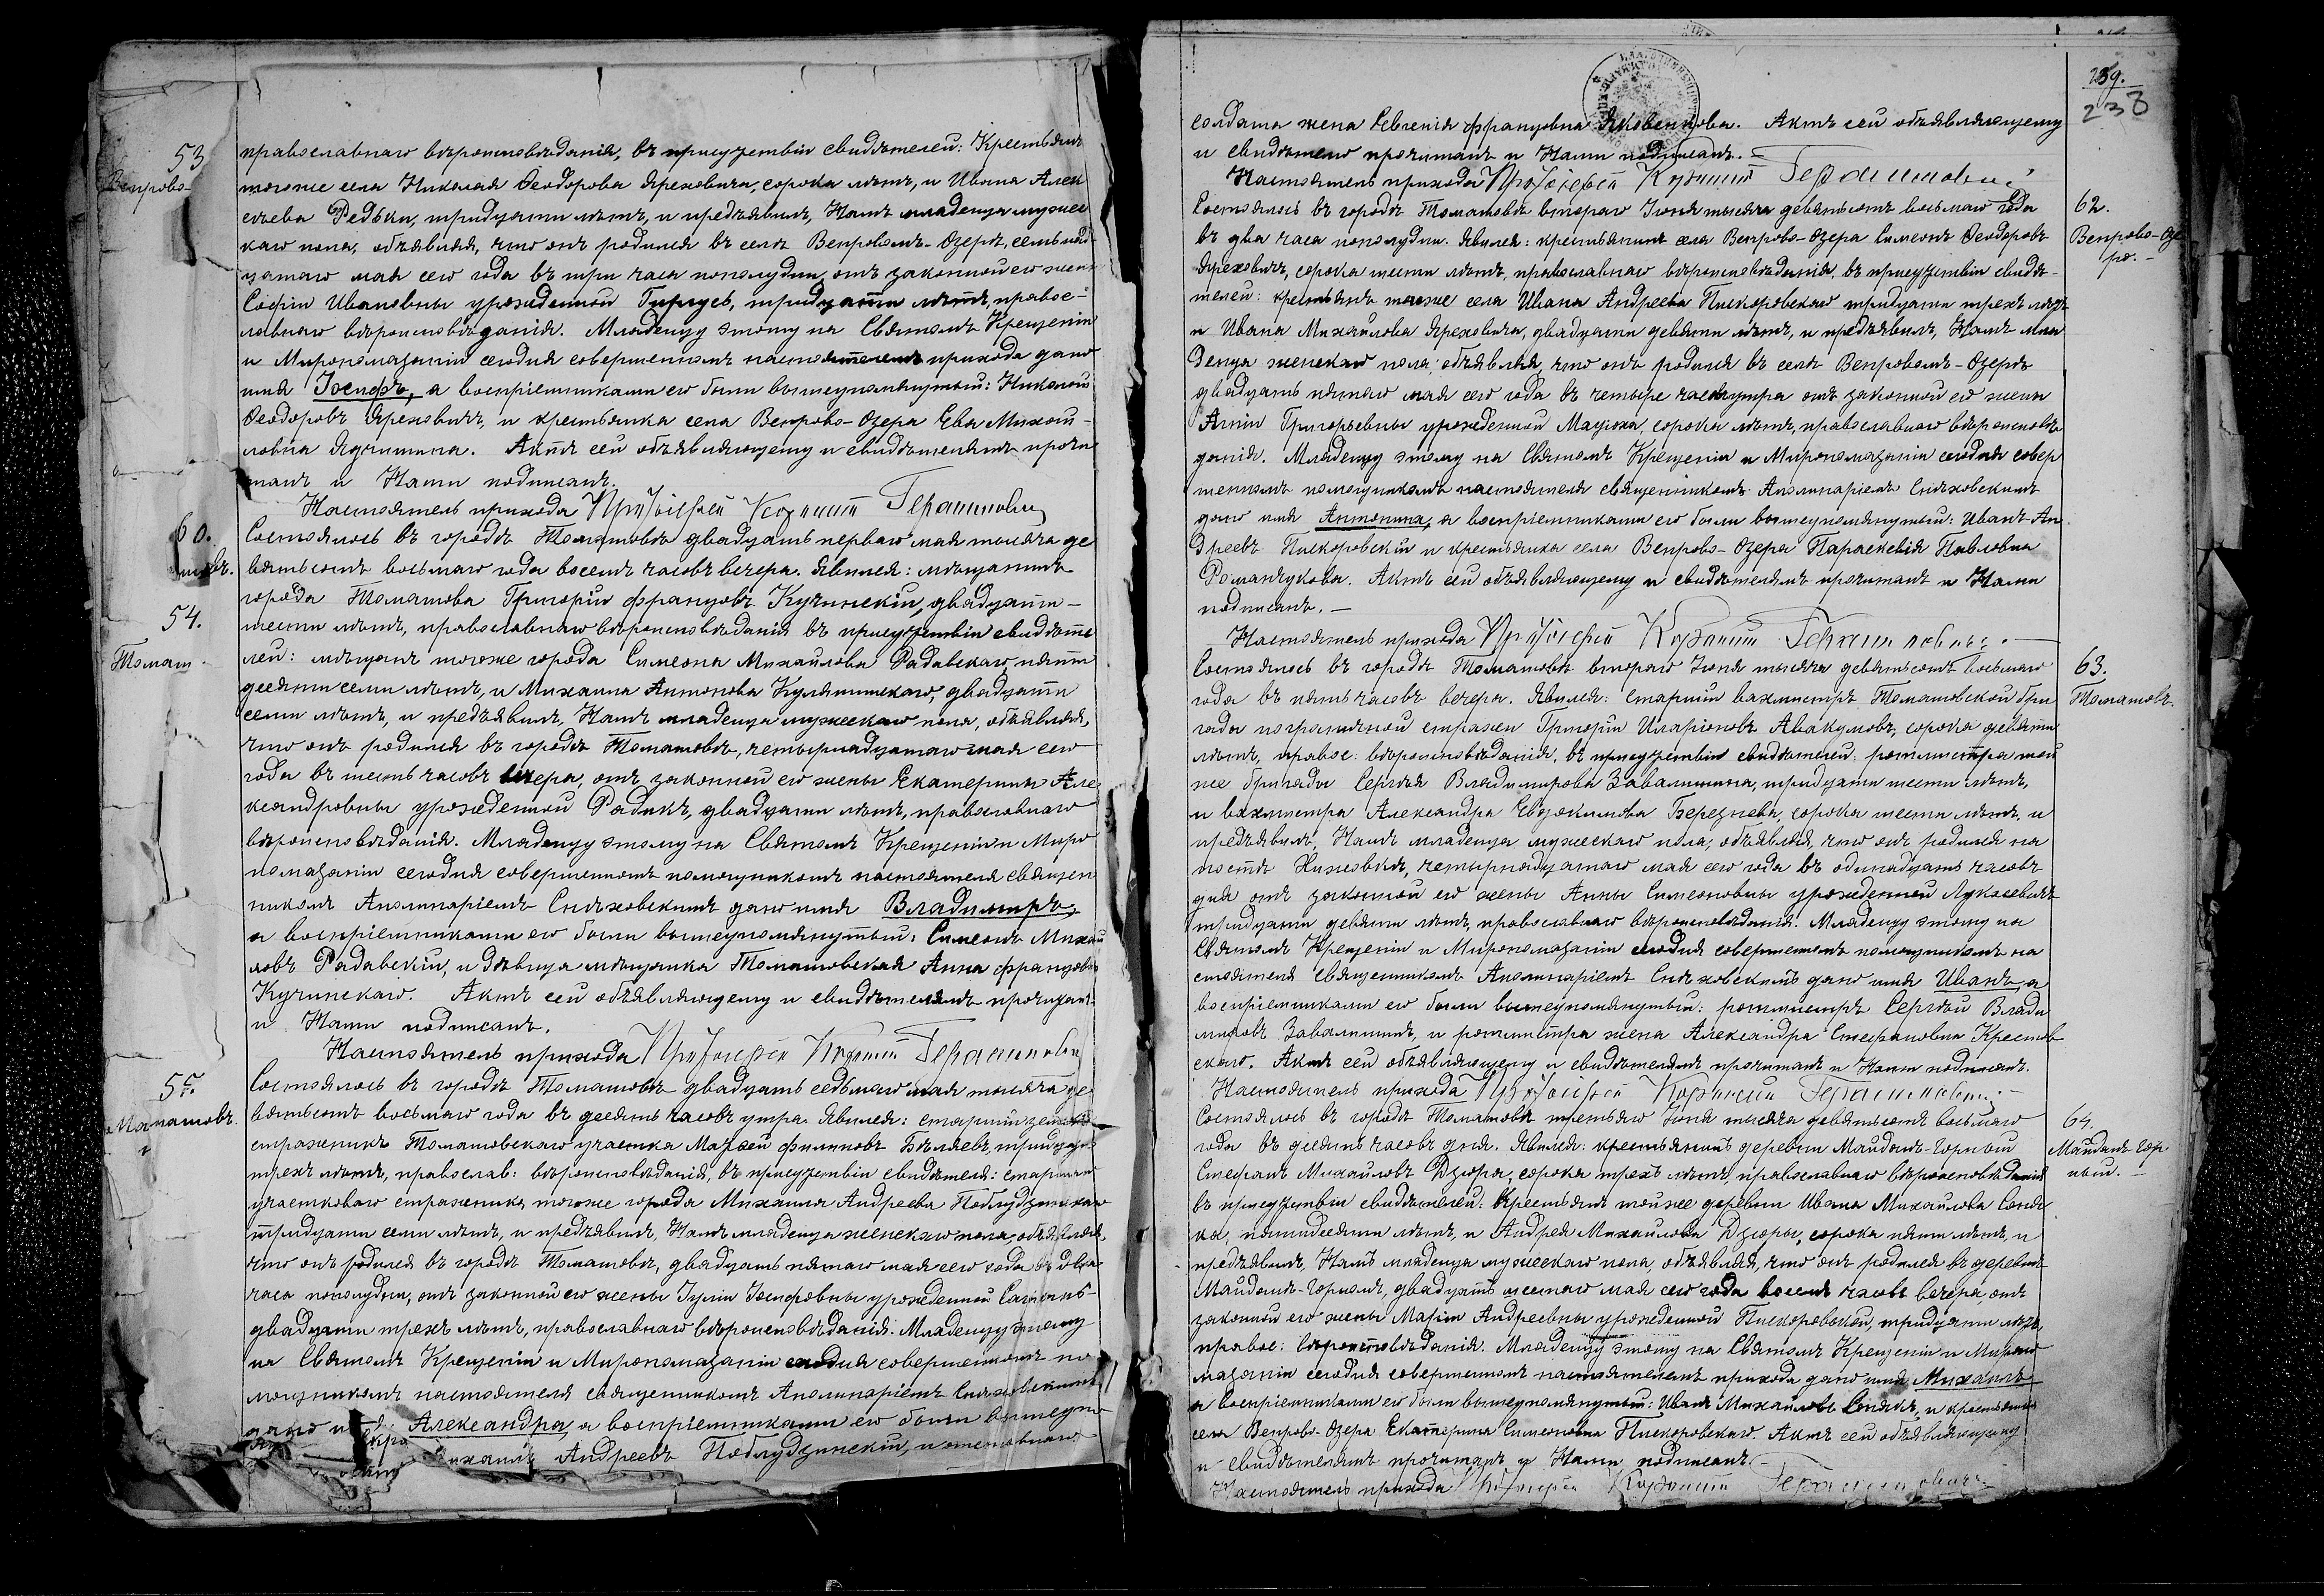 53
Вепрово-
православнаго вѣроисповѣданія, въ присутствіи свидѣтелей: Крестьянъ
тогоже села Николая Ѳеодорова Яреховича, сорока лѣтъ, и Ивана Алек
сѣева Редьки, тридцати лѣтъ, и предъявилъ Намъ младенца мужес
каго пола, объявляя, что онъ родился въ селѣ Вепровомъ-Озерѣ, семьнад-
цатаго мая сего года въ три часа пополудни, отъ законной его жены
Софіи Ивановны урожденной тридцати лѣтъ, правос-
лавнаго вѣроисповѣданія. Младенцу этому на Святомъ Крещеніи
и Миропомазаніи сегодня совершенномъ настоятелемъ прихода дано
имя Іосифъ, а воспріемниками его были вышеупомянутый: Николай
Ѳеодоровъ Яреховичъ, и крестьянка села Вепрово-Озера Ева Михай-
ловна. Актъ сей объявляющему и свидѣтелямъ прочи
танъ и Нами подписанъ.
Настоятель прихода Протоіерей Герашиновичъ
60.
54.
Томаш
Состоялось въ городѣ Томашовѣ двадцать перваго мая тысяча де
вятьсотъ восьмаго года восемъ часовъ вечера. Явился: мѣщанинъ
города Томашова Григорій Францовъ Кучинскій, двадцати-
шести лѣтъ, православнаго вѣроисповѣданія въ присутствіи свидѣте
лей: мѣщанъ тогоже города Симеона Михайлова Радавскаго, пяти
десяти семи лѣтъ, и Михаила Антонова двадцати
семи лѣтъ, и предъявилъ Намъ младенца мужескаго пола, объявляя,
что онъ родился въ городѣ Томашовѣ, четырнадцатаго мая сего
года въ шесть часовъ вечера, отъ законной его жены Екатерины Але
ксандровны урожденной Радикъ, двадцати лѣтъ, православнаго
вѣроисповѣданія. Младенцу этому на Святомъ Крещеніи и Миро
помазаніи сегодня совершенномъ помощникомъ настоятеля священ
никомъ Аполинаріемъ Снѣховскимъ дано имя Владимиръ,
а воспріемниками его были вышеупомянутый: Симеонъ Михай
ловъ Радавскій, и дѣвица мѣщанка Томашовская Анна Францовна
Кучинскаго. Актъ сей объявляющему и свидѣтелямъ прочитанъ
и Нами подписанъ.
Настоятель прихода Протоіерей Герашиновичъ
55.
Томашовъ.
Состоялось въ городѣ Томашовѣ двадцать седьмаго мая тысяча де
вятьсотъ восьмаго года въ десять часовъ утра. Явился: старшій земскій
стражникъ Томашовскаго участка Матѳей Филиповъ Бѣляевъ, тридцати
трехъ лѣтъ, православ: вѣроисповѣданія, въ присутствіи свидѣтеля: старшаго
участковаго стражника тогоже города Михаила Андреева Поблудзинскаго
тридцати семи лѣтъ, и предъявилъ Намъ младенца женскаго пола, объявляя,
что онъ родился въ городѣ Томашовѣ, двадцать пятаго мая сего года въ два
часа пополудни, отъ законной его жены Іуліи Іосифовны урожденной
двадцати трехъ лѣтъ, православнаго вѣроисповѣданія. Младенцу этому
на Святомъ Крещеніи и Миропомазаніи сегодня совершенномъ по
мощникомъ настоятеля священникомъ Аполинаріемъ Снѣховскимъ
дано имя Александра, а воспріемниками его были вышеупо
Михаилъ Андреевъ Поблудзинскій, и
239.
238
солдата жена Евгенія Францовна Яковенкова. Актъ сей объявляющему
и свидѣтелю прочитанъ и Нами подписанъ.
Настоятель прихода Протоіерей Герашиновичъ
62.
Вепрово-Озе
ро.-
Состоялось въ городѣ Томашовѣ втораго Іюня тысяча девятьсотъ восьмаго года
въ два часа пополудни. Явился: крестьянинъ села Вепрово-Озера Симеонъ Ѳеодоровъ
Яреховичъ, сорока шести лѣтъ, православнаго вѣроисповѣданія, въ присутствіи свидѣ-
телей: крестьянъ тогоже села Ивана Андреева Пискоровскаго тридцати трехъ лѣтъ
и Ивана Михайлова Яреховича, двадцати девяти лѣтъ, и предъявилъ Намъ мла
денца женскаго пола, объявляя, что онъ родился въ селѣ Вепровомъ-Озерѣ
двадцать пятаго мая сего года въ четыре часа утра отъ законной его жены
Анны Григорьевны урожденной Мацюха, сорока лѣтъ, православнаго вѣроисповѣ
данія. Младенцу этому на Святомъ Крещеніи и Миропомазаніи сегодня совер
шенномъ помощникомъ настоятеля священникомъ Аполинаріемъ Снѣховскимъ
дано имя Антонина, а воспріемниками его были вышеупомянутый: Иванъ Ан
дреевъ Пискоровскій и крестьянка села Вепрово-Озера Параскевія Павловна
Романчукова. Актъ сей объявляющему и свидѣтелямъ прочитанъ и Нами
подписанъ.-
Настоятель прихода Протоіерей Герашиновичъ
63.
Томашовъ.
Состоялось въ городѣ Томашовѣ втораго Іюня тысяча девятьсотъ восьмаго
года въ пять часовъ вечера. Явился: старшій вахмистръ Томашовской бри
гады пограничной стражи Григорій Иларіоновъ Авакумовъ, сорока девяти
лѣтъ, правос: вѣроисповѣданія, въ присутствіи свидѣтелей: ротмистра той
же бригады Сергѣя Владимирова Завалишина, тридцати шести лѣтъ,
и вахмистра Александра Евдокимова Березнева, сорока шести лѣтъ, и
предъявилъ Намъ младенца мужескаго пола, объявляя, что онъ родился на
постѣ четырнадцатаго мая сего года въ одинадцать часовъ
дня отъ законной его жены Анны Симеоновны урожденной Лукасевичъ
тридцати девяти лѣтъ, православнаго вѣроисповѣданія. Младенцу этому на
Святомъ Крещеніи и Миропомазаніи сегодня совершенномъ помощникомъ на
стоятеля священникомъ Аполинаріемъ Снѣховскимъ дано имя Иванъ, а
воспріемниками его были вышеупомянутый: ротмистръ Сергѣй Влади
мировъ Завалишинъ, и ротмистра жена Александра Стефановна Крестов
скаго. Актъ сей объявляющему и свидѣтелямъ прочитанъ и Нами подписанъ.
Настоятель прихода Протоіерей Герашиновичъ
64.
Майданъ-Гор
ный.-
Состоялось въ городѣ Томашовѣ третьяго Іюня тысяча девятьсотъ восьмаго
года въ десять часовъ дня. Явился: крестьянинъ деревни Майданъ-Горный
Стефанъ Михайловъ Дзюра, сорока трехъ лѣтъ, православнаго вѣроисповѣданія
въ присутствіи свидѣтелей: Крестьянъ тойже деревни Ивана Михайлова
пятидесяти лѣтъ, и Андрея Михайлова Дзюры, сорока пяти лѣтъ, и
предъявилъ Намъ младенца мужескаго пола, объявляя, что онъ родился въ деревнѣ
Майданъ-Горномъ, двадцать шестаго мая сего года восемъ часовъ вечера, отъ
законной его жены Маріи Андреевны урожденной Пискоровской, тридцати лѣтъ,
правос: вѣроисповѣданія. Младенцу этому на Святомъ Крещеніи и Миропо
мазаніи сегодня совершенномъ настоятелемъ прихода дано имя Михаилъ
а воспріемниками его были вышеупомянутый: Иванъ Михайловъ и крестьянка
села Вепрово-Озера Екатерина Симеоновна Пискоровскаго. Актъ сей объявляющему
и свидѣтелямъ прочитанъ и Нами подписанъ
Настоятель прихода Протоіерей Герашиновичъ